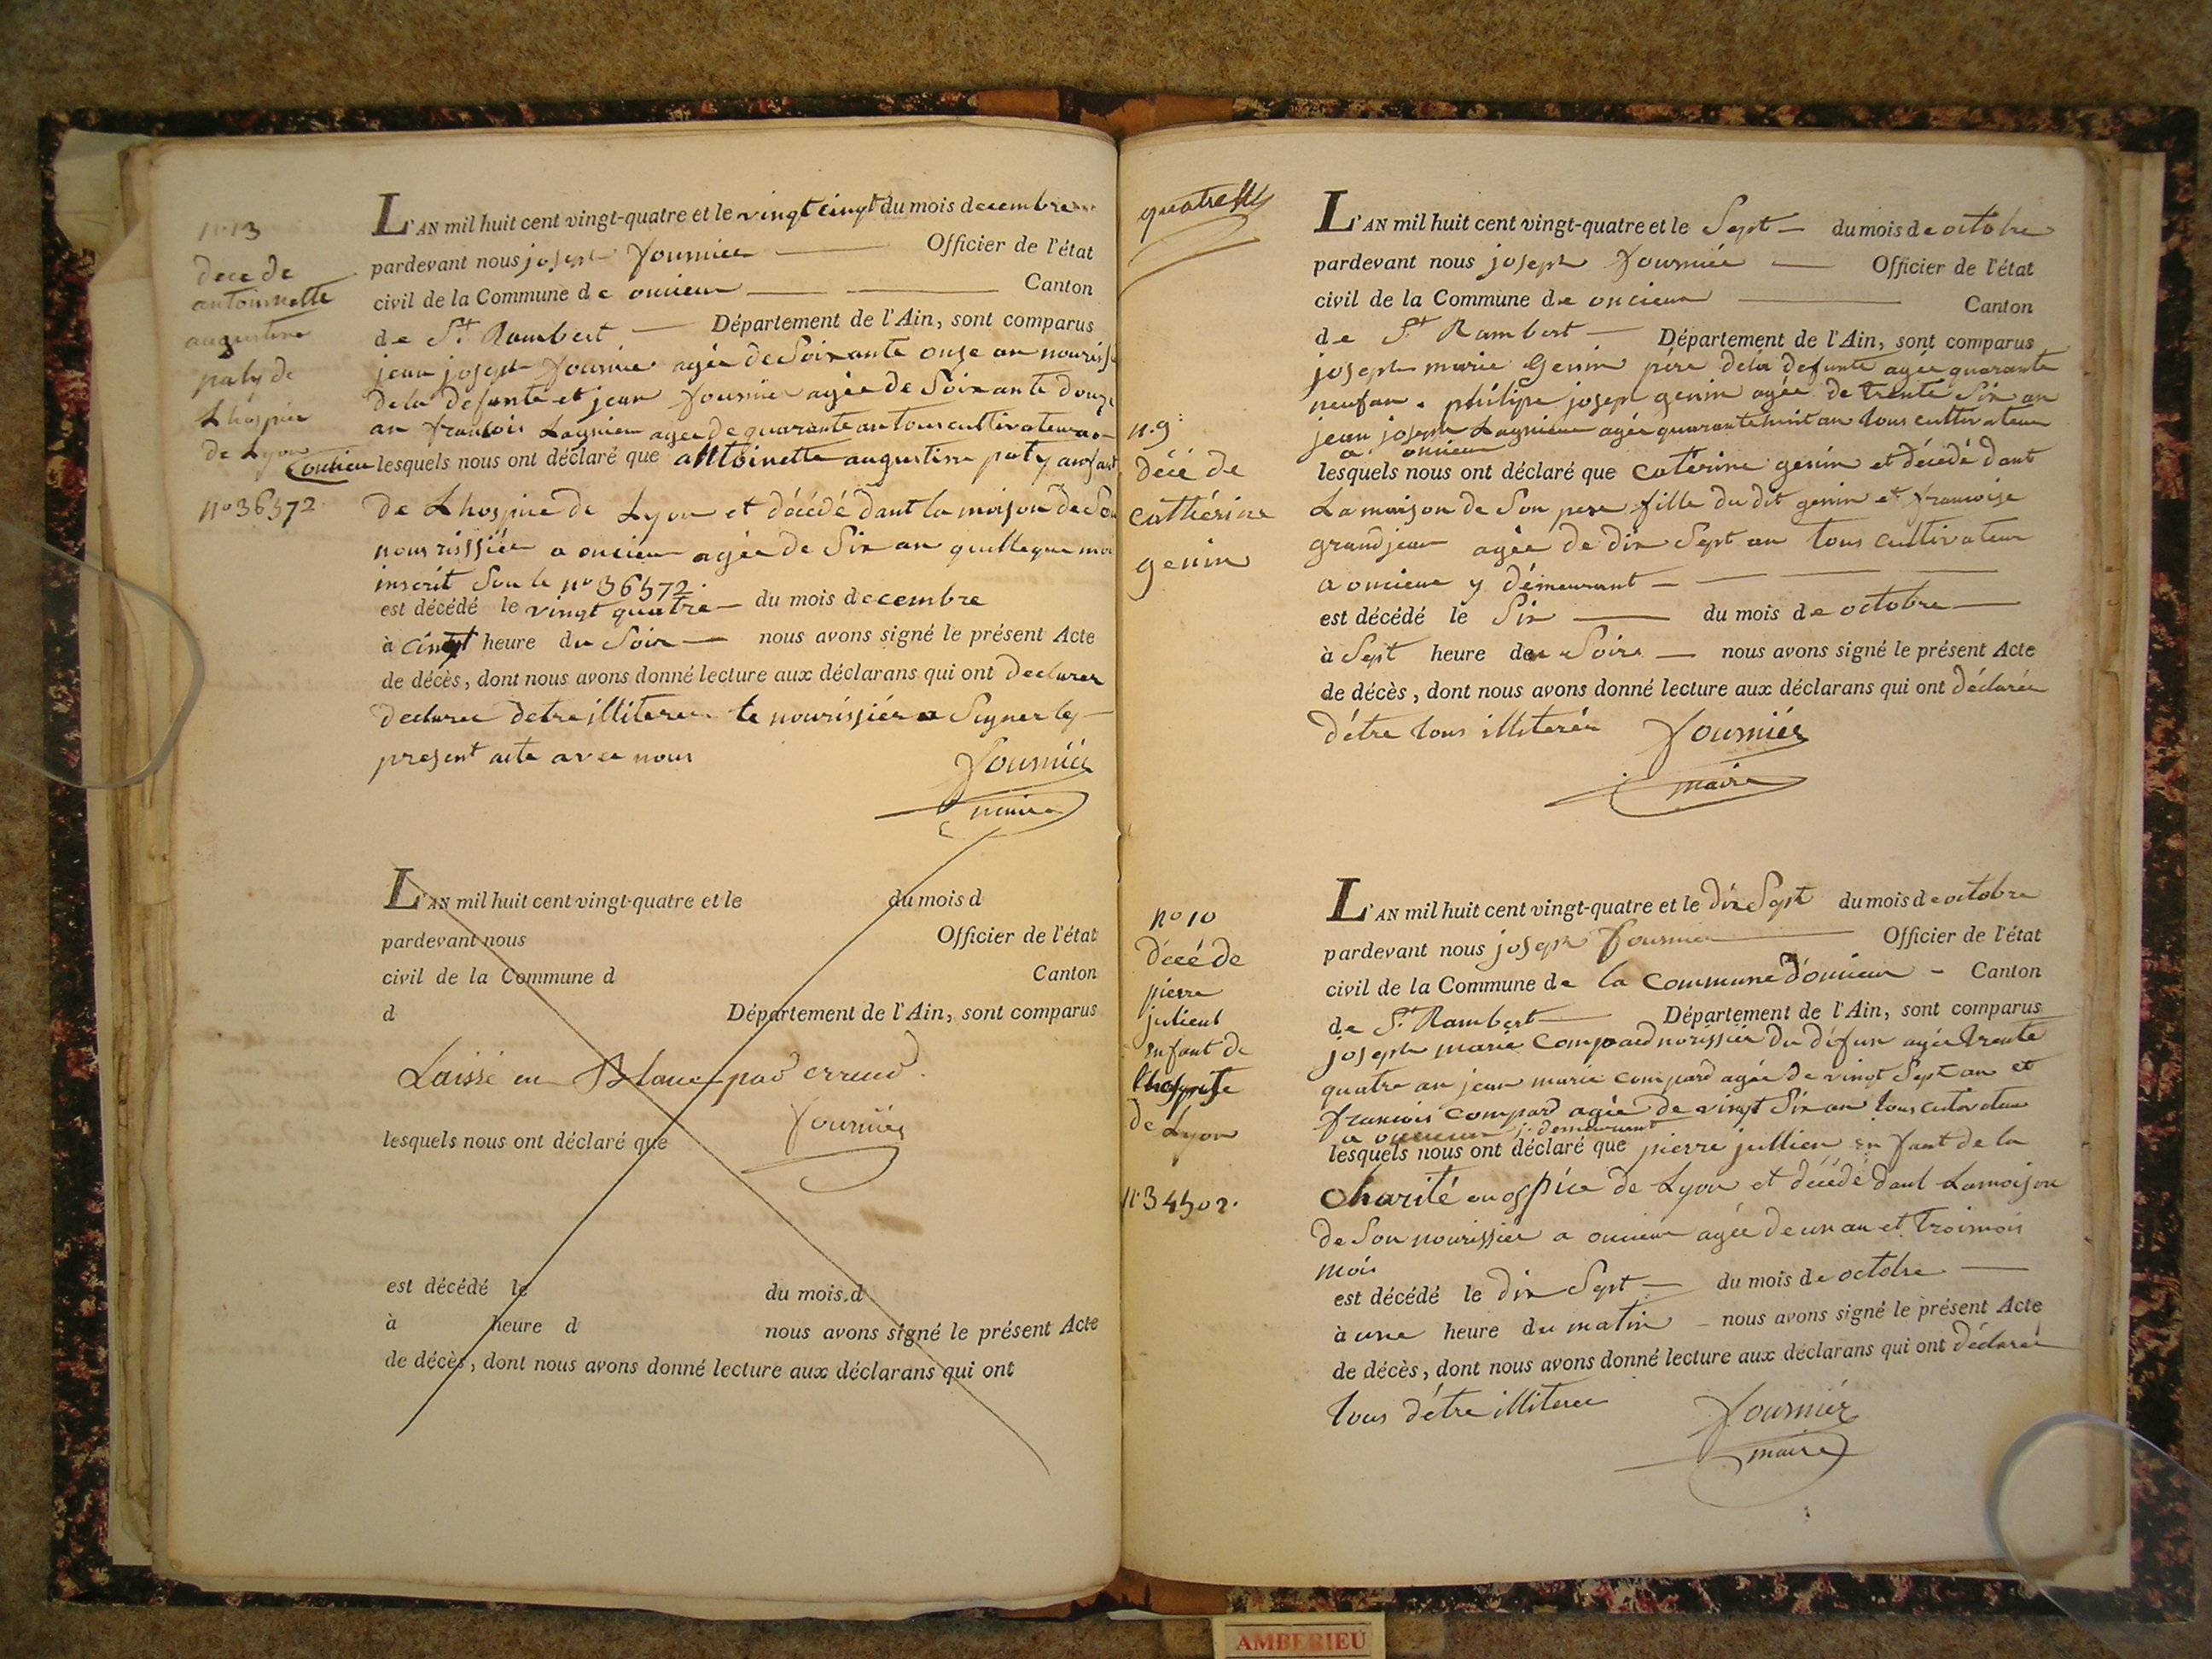 n.13
décé de
antoinnette
augustine
paty de
Lhospice
de Lyon
n° 36572.
L'AN mil huit cent vingt-quatre et le vingt cinqt du mois decembre
pardevant nous joseph fournier Officier de l'état
civil de la Commune de oncieu Canton
de St Rambert Département de l'Ain, sont comparus
jean joseph fournier agée de Soixante onze an nourissi
de la defunte et jean fournier agée de Soixante douze
an francois Lagnieu agée de quarante an tous cultivateur a
oncieu lesquels nous ont déclaré que antoinette augustine paty anfant
de Lhospice de Lyon et décédé dant la maison de Son
nourrissier a oncieu agée de Six an
inscrit Sou le n° 36572.
est décédé le vingt quatre du mois decembre
à cinqt heure du Soir nous avons signé le présent Acte
de décès, dont nous avons donné lecture aux déclarans qui ont declarer
declarer detre illiterer le nourissier a Signer le
present acte avec nous
fournier
maire
L'AN mil huit cent vingt-quatre et le du mois d
pardevant nous Officier de l'état
civil de la Commune d Canton
d Département de l'Ain, sont comparus
Laissé en Blanc par erreur.
fournier
lesquels nous ont déclaré que
est décédé le du mois d
à heure d nous avons signé le présent Acte
de décès, dont nous avons donné lecture aux déclarans qui ont
n.9
Décé de
cathérine
genin
L'AN mil huit cent vingt-quatre et le Sept du mois de octobre
pardevant nous joseph fournier Officier de l'état
civil de la Commune de oncieu Canton
de St Rambert Département de l'Ain, sont comparus
joseph marie Genin pére de la defunte agée quarante
neuf an. philipe joseph genin agée de trente Six an
jean joseph Lagnieu agée quarante huit an tous cultivateur
a oncieu
lesquels nous ont déclaré que catérine genin et décédé dant
La maison de Son pere fille du dit genin et francoise
grandjean agée de dix Sept an tous cultivateur
a oncieu y démeurant
est décédé le Six du mois de octobre
à Sept heure du Soire nous avons signé le présent Acte
de décès, dont nous avons donné lecture aux déclarans qui ont déclarér
d'étre tous illiterér fournier
maire
n° 10
Décé de
pierre
julient
enfant de
de Lyon
n° 34502.
L'AN mil huit cent vingt-quatre et le dix Sept du mois de octobre
pardevant nous joseph fournier Officier de l'état
civil de la Commune de la commune d'oncieu Canton
de St Rambert Département de l'Ain, sont comparus
joseph marie compard norissier du défun agée trente
quatre an jean marie compard agée de vingt Sept an et
francois compard agée de vingt Six an tous
a oncieu y demeurant
lesquels nous ont déclaré que pierre jullien enfant de la
charité ou ospice de Lyon et décédé dant La maison
de Son nourissier a oncieu agée de un an et troi mois
mois
est décédé le dix Sept du mois de octobre
à une heure du matin nous avons signé le présent Acte
de décès, dont nous avons donné lecture aux déclarans qui ont déclarér
tous d'étre illiterer fournier
maire
AMBERIEU